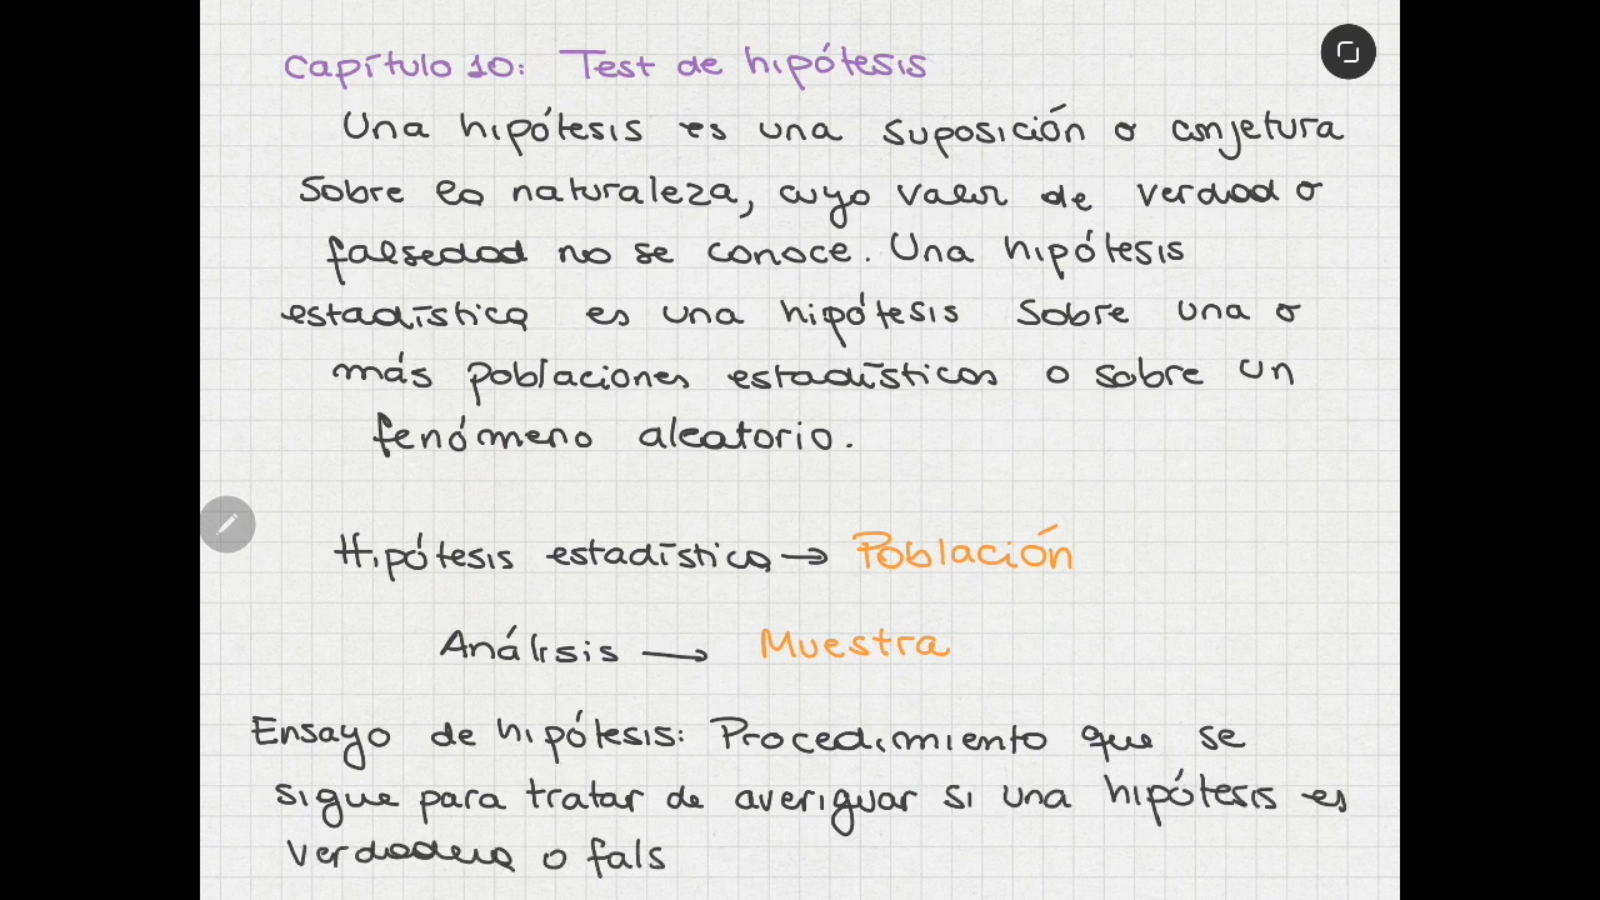 Capítulo 10: Test de hipótesis
Una hipótesis es una suposición o conjetura
sobre la naturaleza, cuyo valor de verdad o
falsedad no se conoce. Una hipótesis
estadística es una hipótesis sobre una o
más poblaciones estadísticas o sobre un
fenómeno aleatorio.
Hipótesis estadística → Población
Análisis → Muestra
Ensayo de hipótesis: Procedimiento que se
sigue para tratar de averiguar si una hipótesis es
verdadera o fals